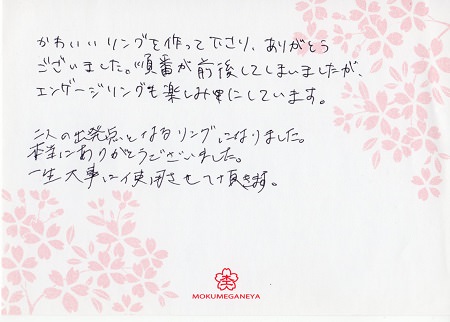 かわいいリングを作って下さり、ありがとう
ございました。順番が前後してしまいましたが、
エンゲージリングも楽しみにしています。
二人の出発点となるリングになりました。
本当にありがとうございました。
一生大事に使用させて頂きます。
MOKUMEGANEYA